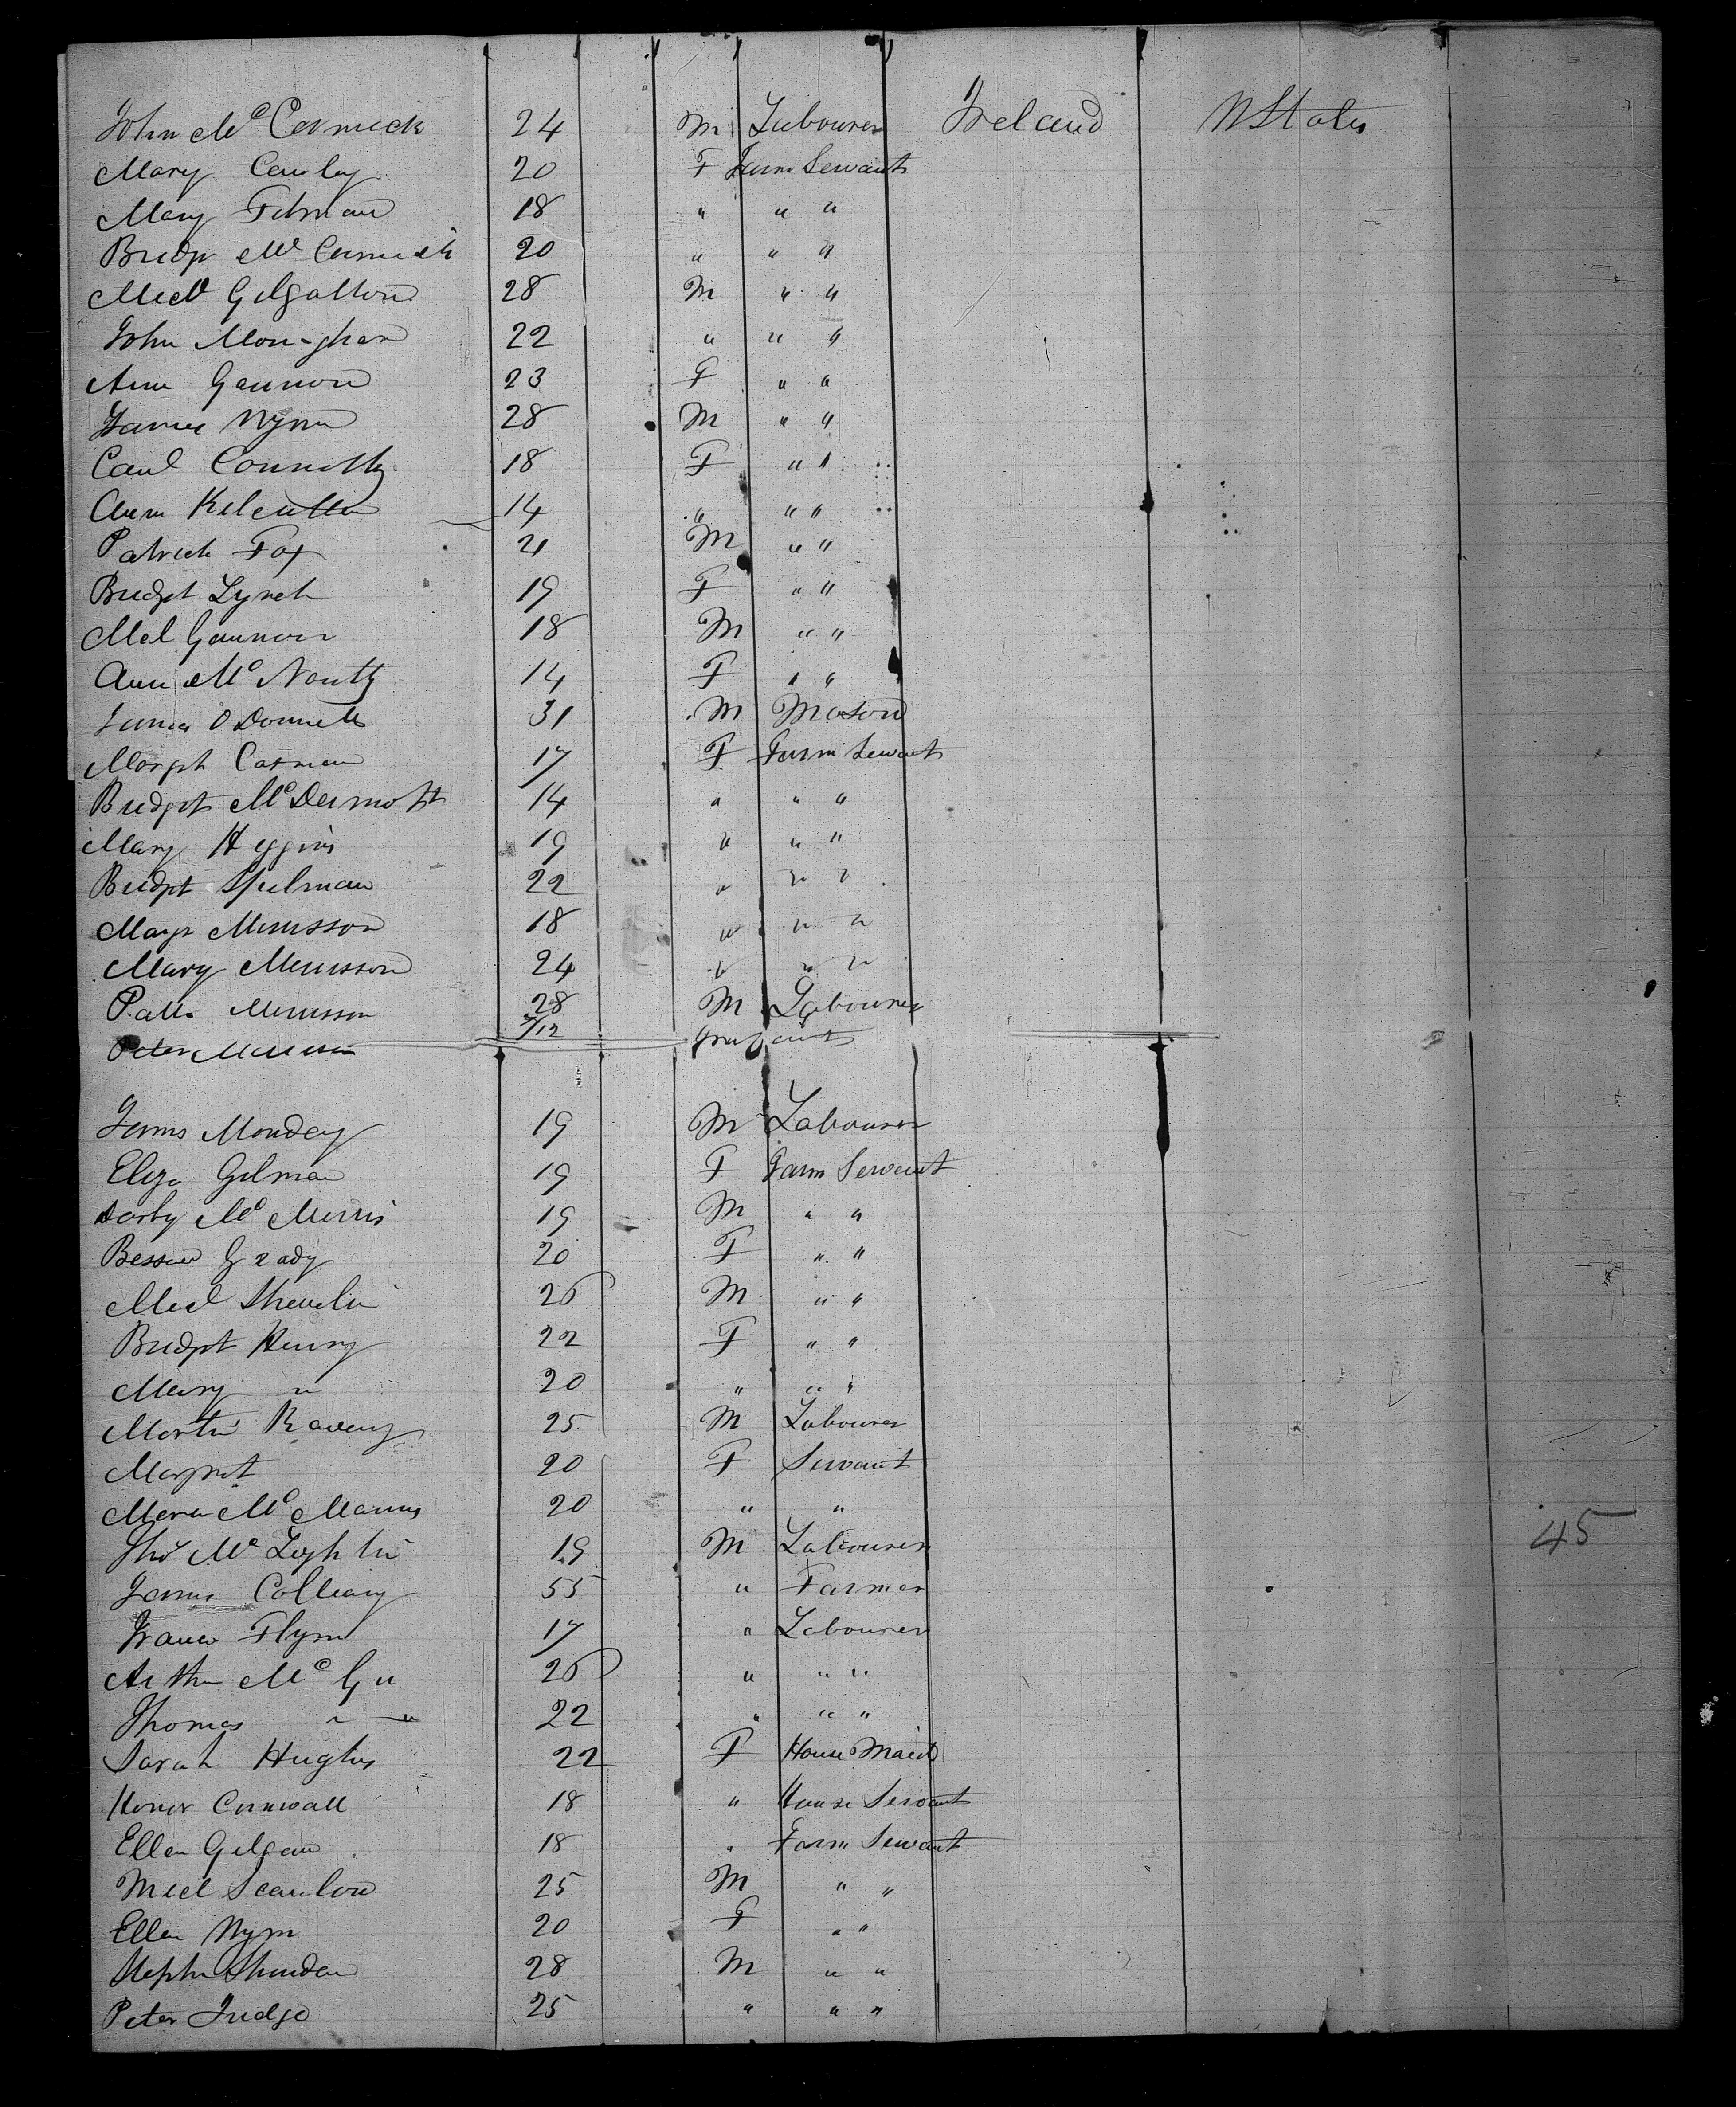 John Mc Cormick 24 M Labourer Ireland U States
Mary Cauley 20 F Farm Servant
Mary 18 " " "
Bridgt Mc Cormick 20 " " "
Micl Gilgallon 28 M " "
John Monaghan 22 " " "
Ann Gannon 23 F " "
James Wynn 28 M " "
Connolly 18 F " "
Ann Kilcullen 14 " " "
Patrick Fox 21 M " "
Bridgt Lynch 19 F " "
Mcl Gannon 18 M " "
Ann Mc Nonlty 14 F " "
James O Donnell 31 M Mason
Margt 17 F Farm Servant
Bridgt Mc Dermott 14 " " "
Mary Higgins 19 " " "
Bridgt Spelman 22 " " "
Margt Morrisson 18 " " "
Mary Morrisson 24 " " "
Patk Morrisson 28 M Labourer
Peter /12 Infant
James Monday 19 M Labourer
Eliza Gilman 19 F Farm Servant
Darby Mc Morris 19 M " "
Grady 20 F " "
Micl Shevlin 26 M " "
Bridgt Henry 22 F " "
Mary " 20 " " "
Martin Raveny 25 M Labourer
Margret 20 F Servant
Mc Manus 20 " "
Thos Mc Loghlin 19 M Labourer 45
James Colleary 55 " Farmer
Flynn 17 " Labourer
Arthur Mc Gu 26 " " "
Thomas " " 22 " " "
Sarah Hughes 22 F House Maid
Honor Cornwall 18 " House Servant
Ellen Gilgan 18 " Farm Servant
Micl Scanlon 25 M " "
Ellen Wynn 20 F " "
Stephn Sheridan 28 M " "
Peter Judge 25 " " "